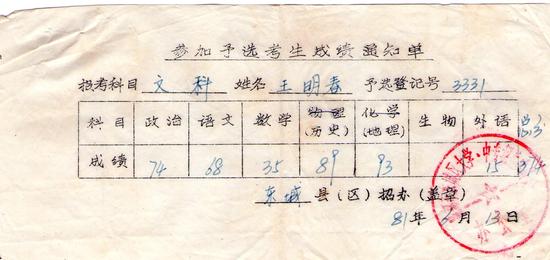 参加予选考生成绩通知单
报考科目 文科 姓名 王明春 予选登记号 3331
科目 政治 语文 数学 物理(历史) 化学(地理) 生物 外语 总
成绩 74 68 35 89 93 15 374
东城县(区)招办(盖章)
81年 月13日